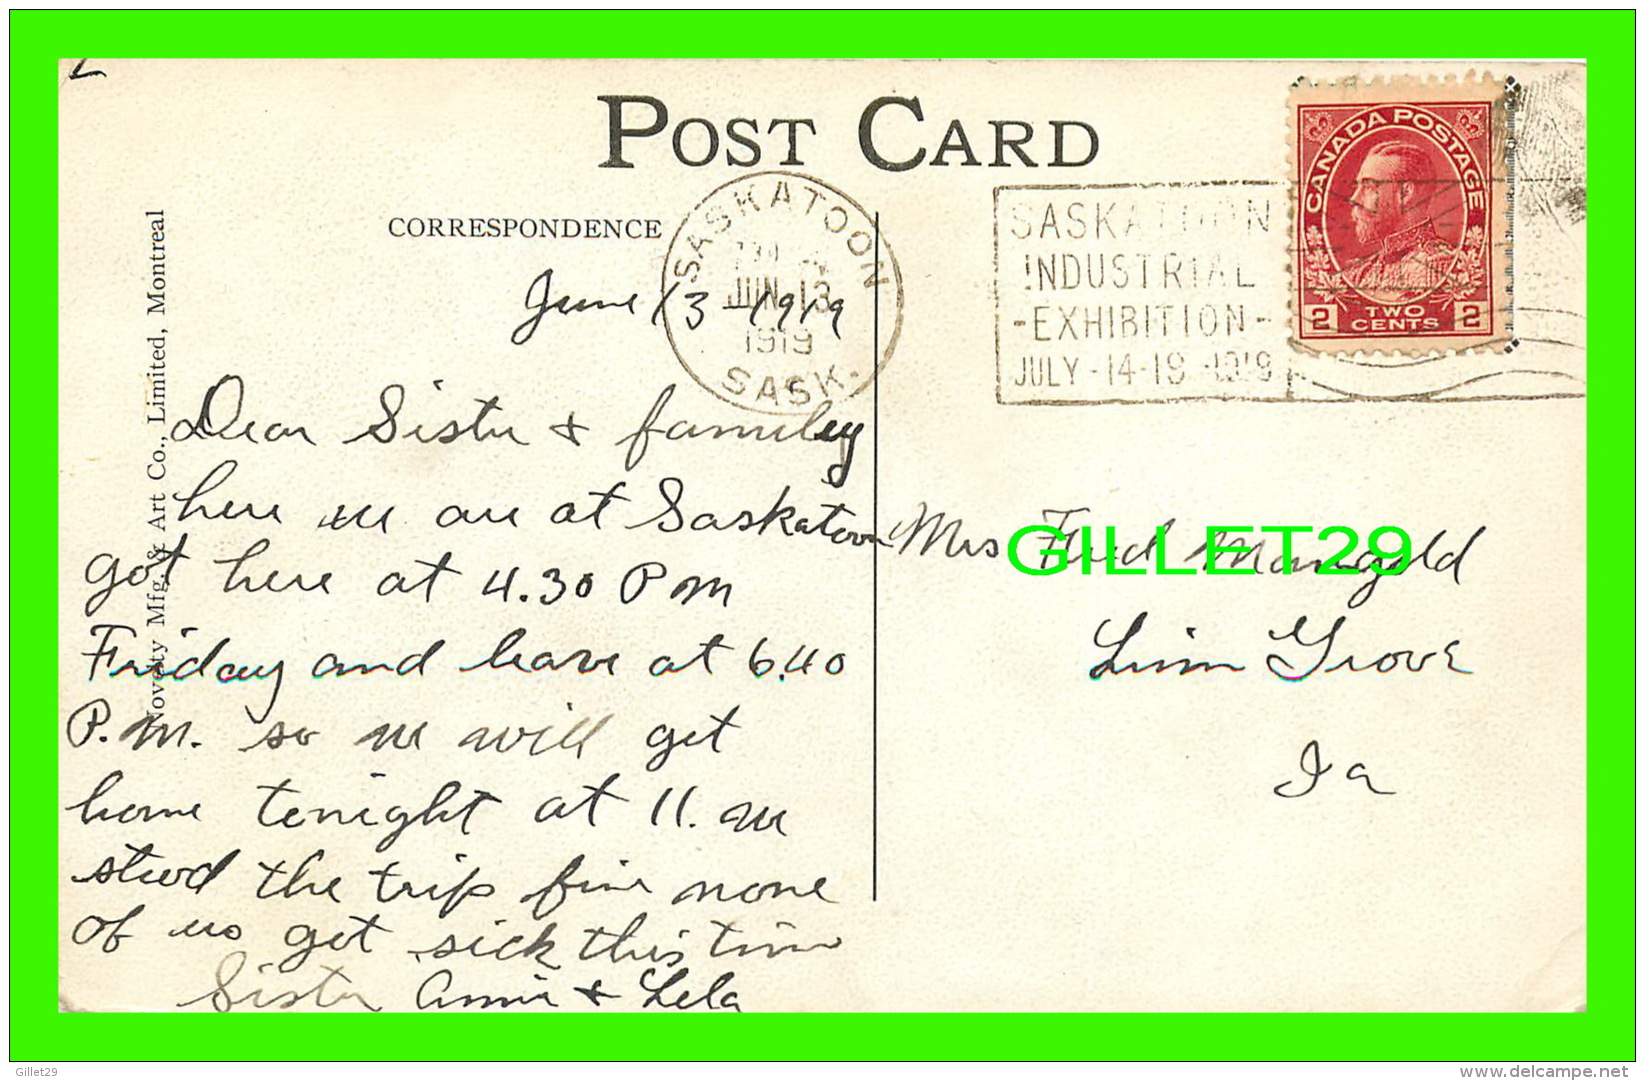 POST CARD
CORRESPONDENCE
SASKATOON
JUN 13
1919
SASK.
SASKATOON
INDUSTRIAL
-EXHIBITION-
JULY-14-19-1919
CANADA POSTAGE
2 TWO CENTS 2
Novelty Mfg. & Art Co., Limited, Montreal
June 13 - 1919
Dear Sister & familey
here we are at Saskatoon
got here at 4.30 P M
Friday and leave at 6.40
P.M. so we will get
home tenight at 11. we
stood the trip fine none
of us get sick this time
Sister Annie & Lela
Mrs Fred Mangold
Linn Grove
Ia
GILLET29
Gillet29
www.delcampe.net